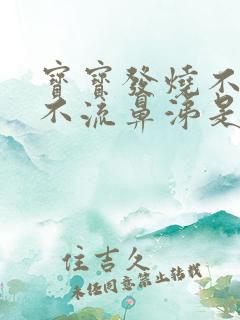 寶寶發燒不
不流鼻涕是
住吉久
未经同意禁止转载